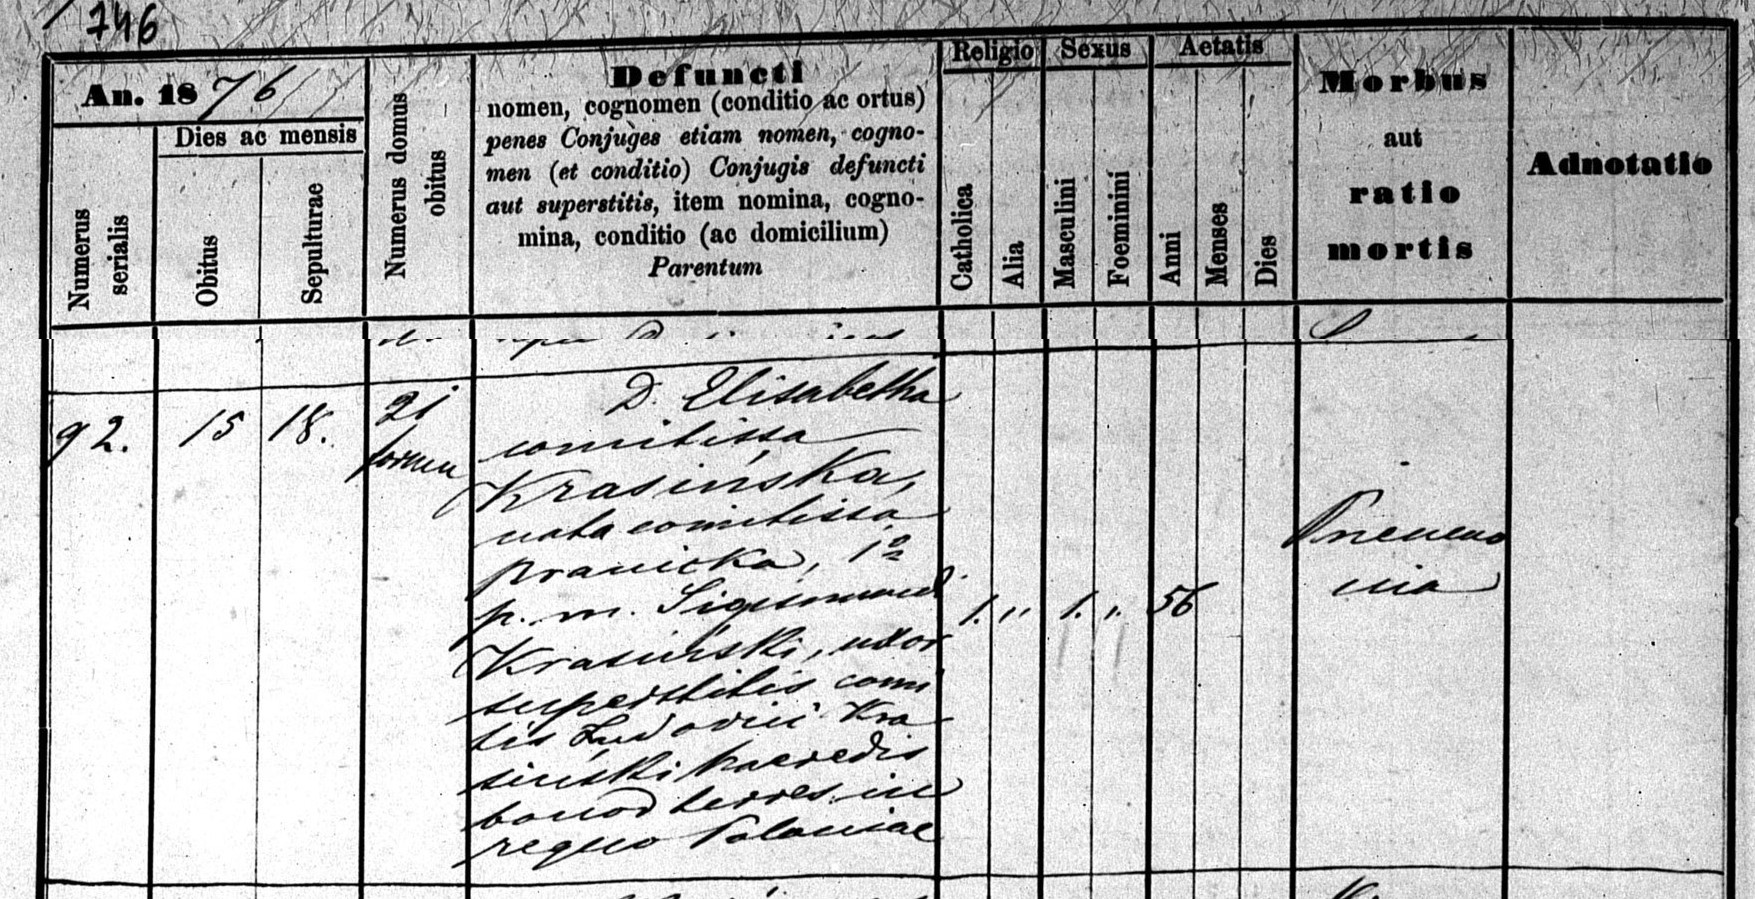 746
An. 1876
Dies ac mensis
Numerus serialis
Obitus
Sepulturae
Numerus domus obitus
Defuncti
nomen, cognomen (conditio ac ortus)
penes Conjuges etiam nomen, cogno-
men (et conditio) Conjugis defuncti
aut superstitis, item nomina, cogno-
mina, conditio (ac domicilium)
Parentum
Religio
Catholica
Alia
Sexus
Masculini
Foeminini
Aetatis
Anni
Menses
Dies
Morbus
aut
ratio
mortis
Adnotatio
92. 15 18. 21
D. Elisabetha
comitissa
Krasińska,
nata comitissa
Branicka, 1º
p. m. Sigismund
Krasiński, uxor
superstitis comi
tis Ludovici Kra
siński haeredis
bonor terres. in
regno Poloniae
1. " 1. " 56
Pneumo
nia